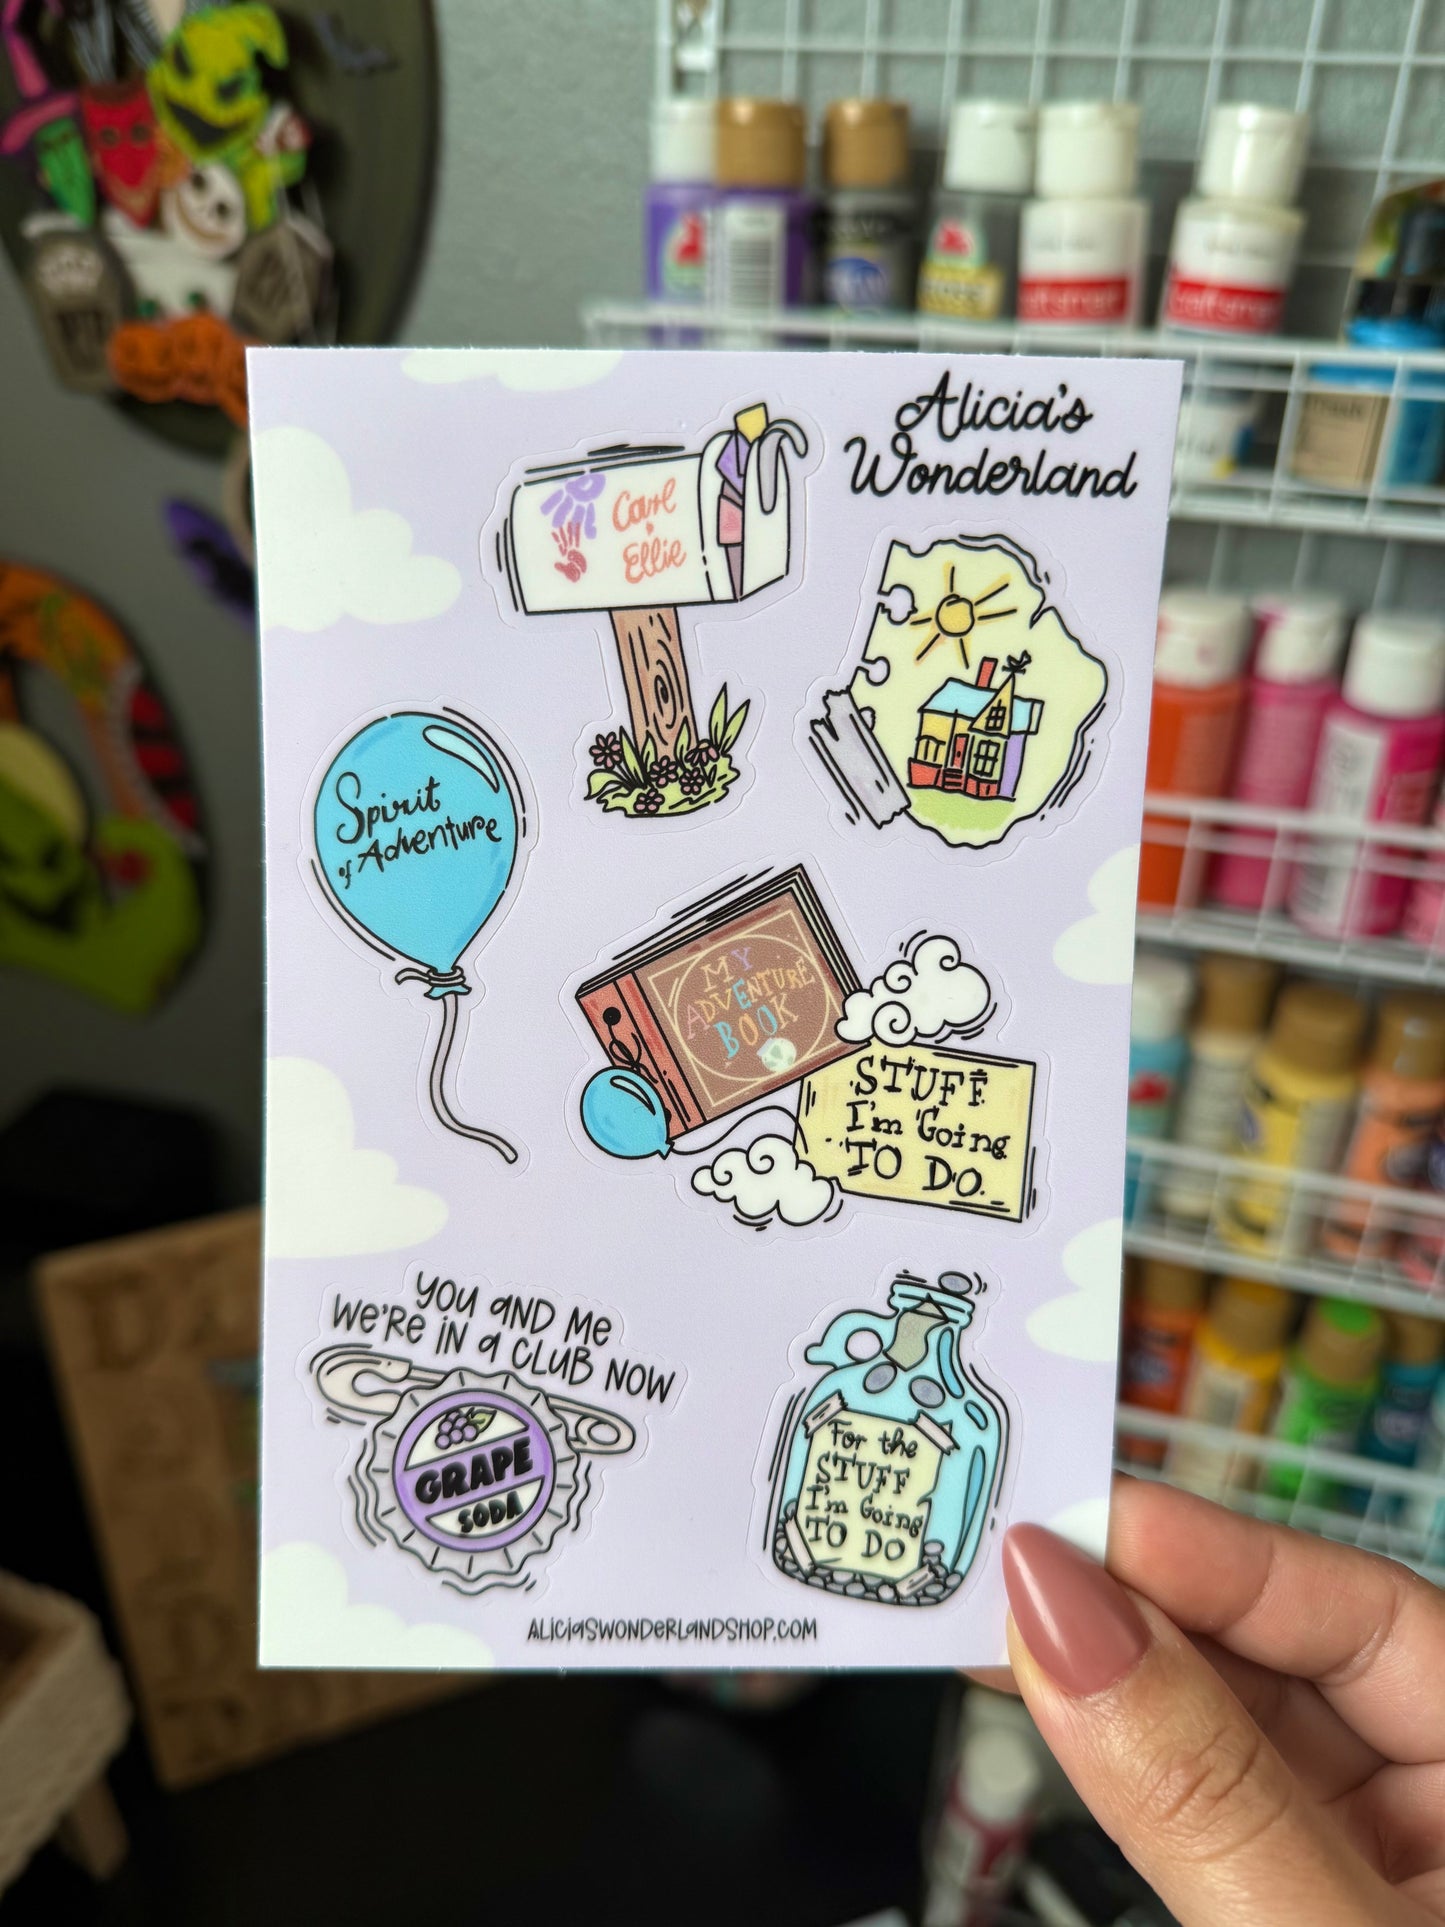 Alicia's
Wonderland
Carl
&
Ellie
Spirit
of Adventure
MY
ADVENTURE
BOOK
STUFF
I'm Going
TO DO.
YOU AND ME
WE'RE IN A CLUB NOW
GRAPE
SODA
For the
STUFF
I'm Going
TO DO
ALICIASWONDERLANDSHOP.COM